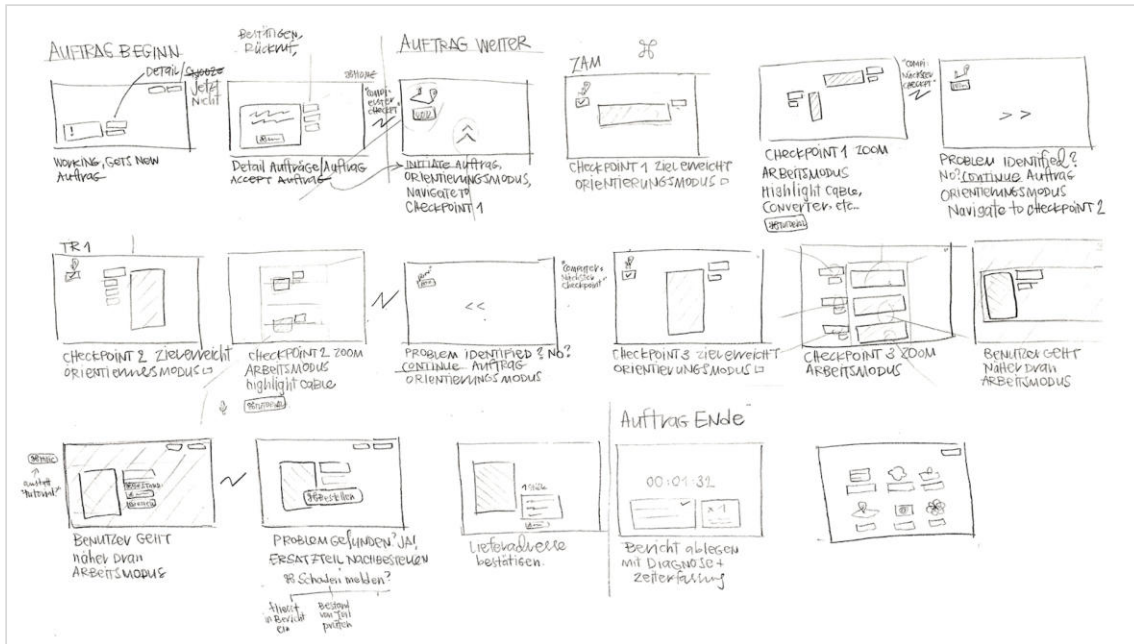 AUFTRAG BEGINN
BESTÄTIGEN,
RÜCKRUF,
AUFTRAG WEITER
DETAIL/SNOOZE
Jetzt
Nicht
!
WORKING, GETS NEW
AUFTRAG
Detail Aufträge/Auftrag
ACCEPT AUFTRAG
ERSTER
CHECKPT."
INITIATE AUFTRAG,
ORIENTIERUNGSMODUS,
NAVIGATE TO
CHECKPOINT 1
ZAM
⌘
CHECKPOINT 1 ZIEL ERREICHT
ORIENTIERUNGSMODUS
CHECKPOINT 1 ZOOM
ARBEITSMODUS
Highlight Cable,
Converter. etc..
⌘TUTORIAL
NÄCHSTER
CHECKPT"
> >
PROBLEM IDENTIFIED?
NO? CONTINUE AUFTRAG
ORIENTIERUNGSMODUS
Navigate to CHECKPOINT 2
TR 1
CHECKPOINT 2 ZIEL ERREICHT
ORIENTIERUNGSMODUS
CHECKPOINT 2 ZOOM
ARBEITSMODUS
highlight CABLE
⌘TUTORIAL
<<
PROBLEM IDENTIFIED? NO?
CONTINUE AUFTRAG
ORIENTIERUNGSMODUS
"COMPUTER
Nächster
Checkpoint"
CHECKPOINT 3 ZIEL ERREICHT
ORIENTIERUNGSMODUS
CHECKPOINT 3 ZOOM
ARBEITSMODUS
BENUTZER GEHT
Näher Dran
ARBEITSMODUS
anstatt
"Tutorial"
BENUTZER GEHT
näher Dran
ARBEITSMODUS
⌘Bestellen
PROBLEM GEFUNDEN? JA!
ERSATZTEIL NACHBESTELLEN
⌘ Schaden melden?
fliesst
in Bericht
ein
Bestand
von Teil
prüfen
Lieferadresse
bestätigen.
Auftrag Ende
00:01:32
x 1
Bericht ablegen
mit Diagnose +
Zeiterfassung